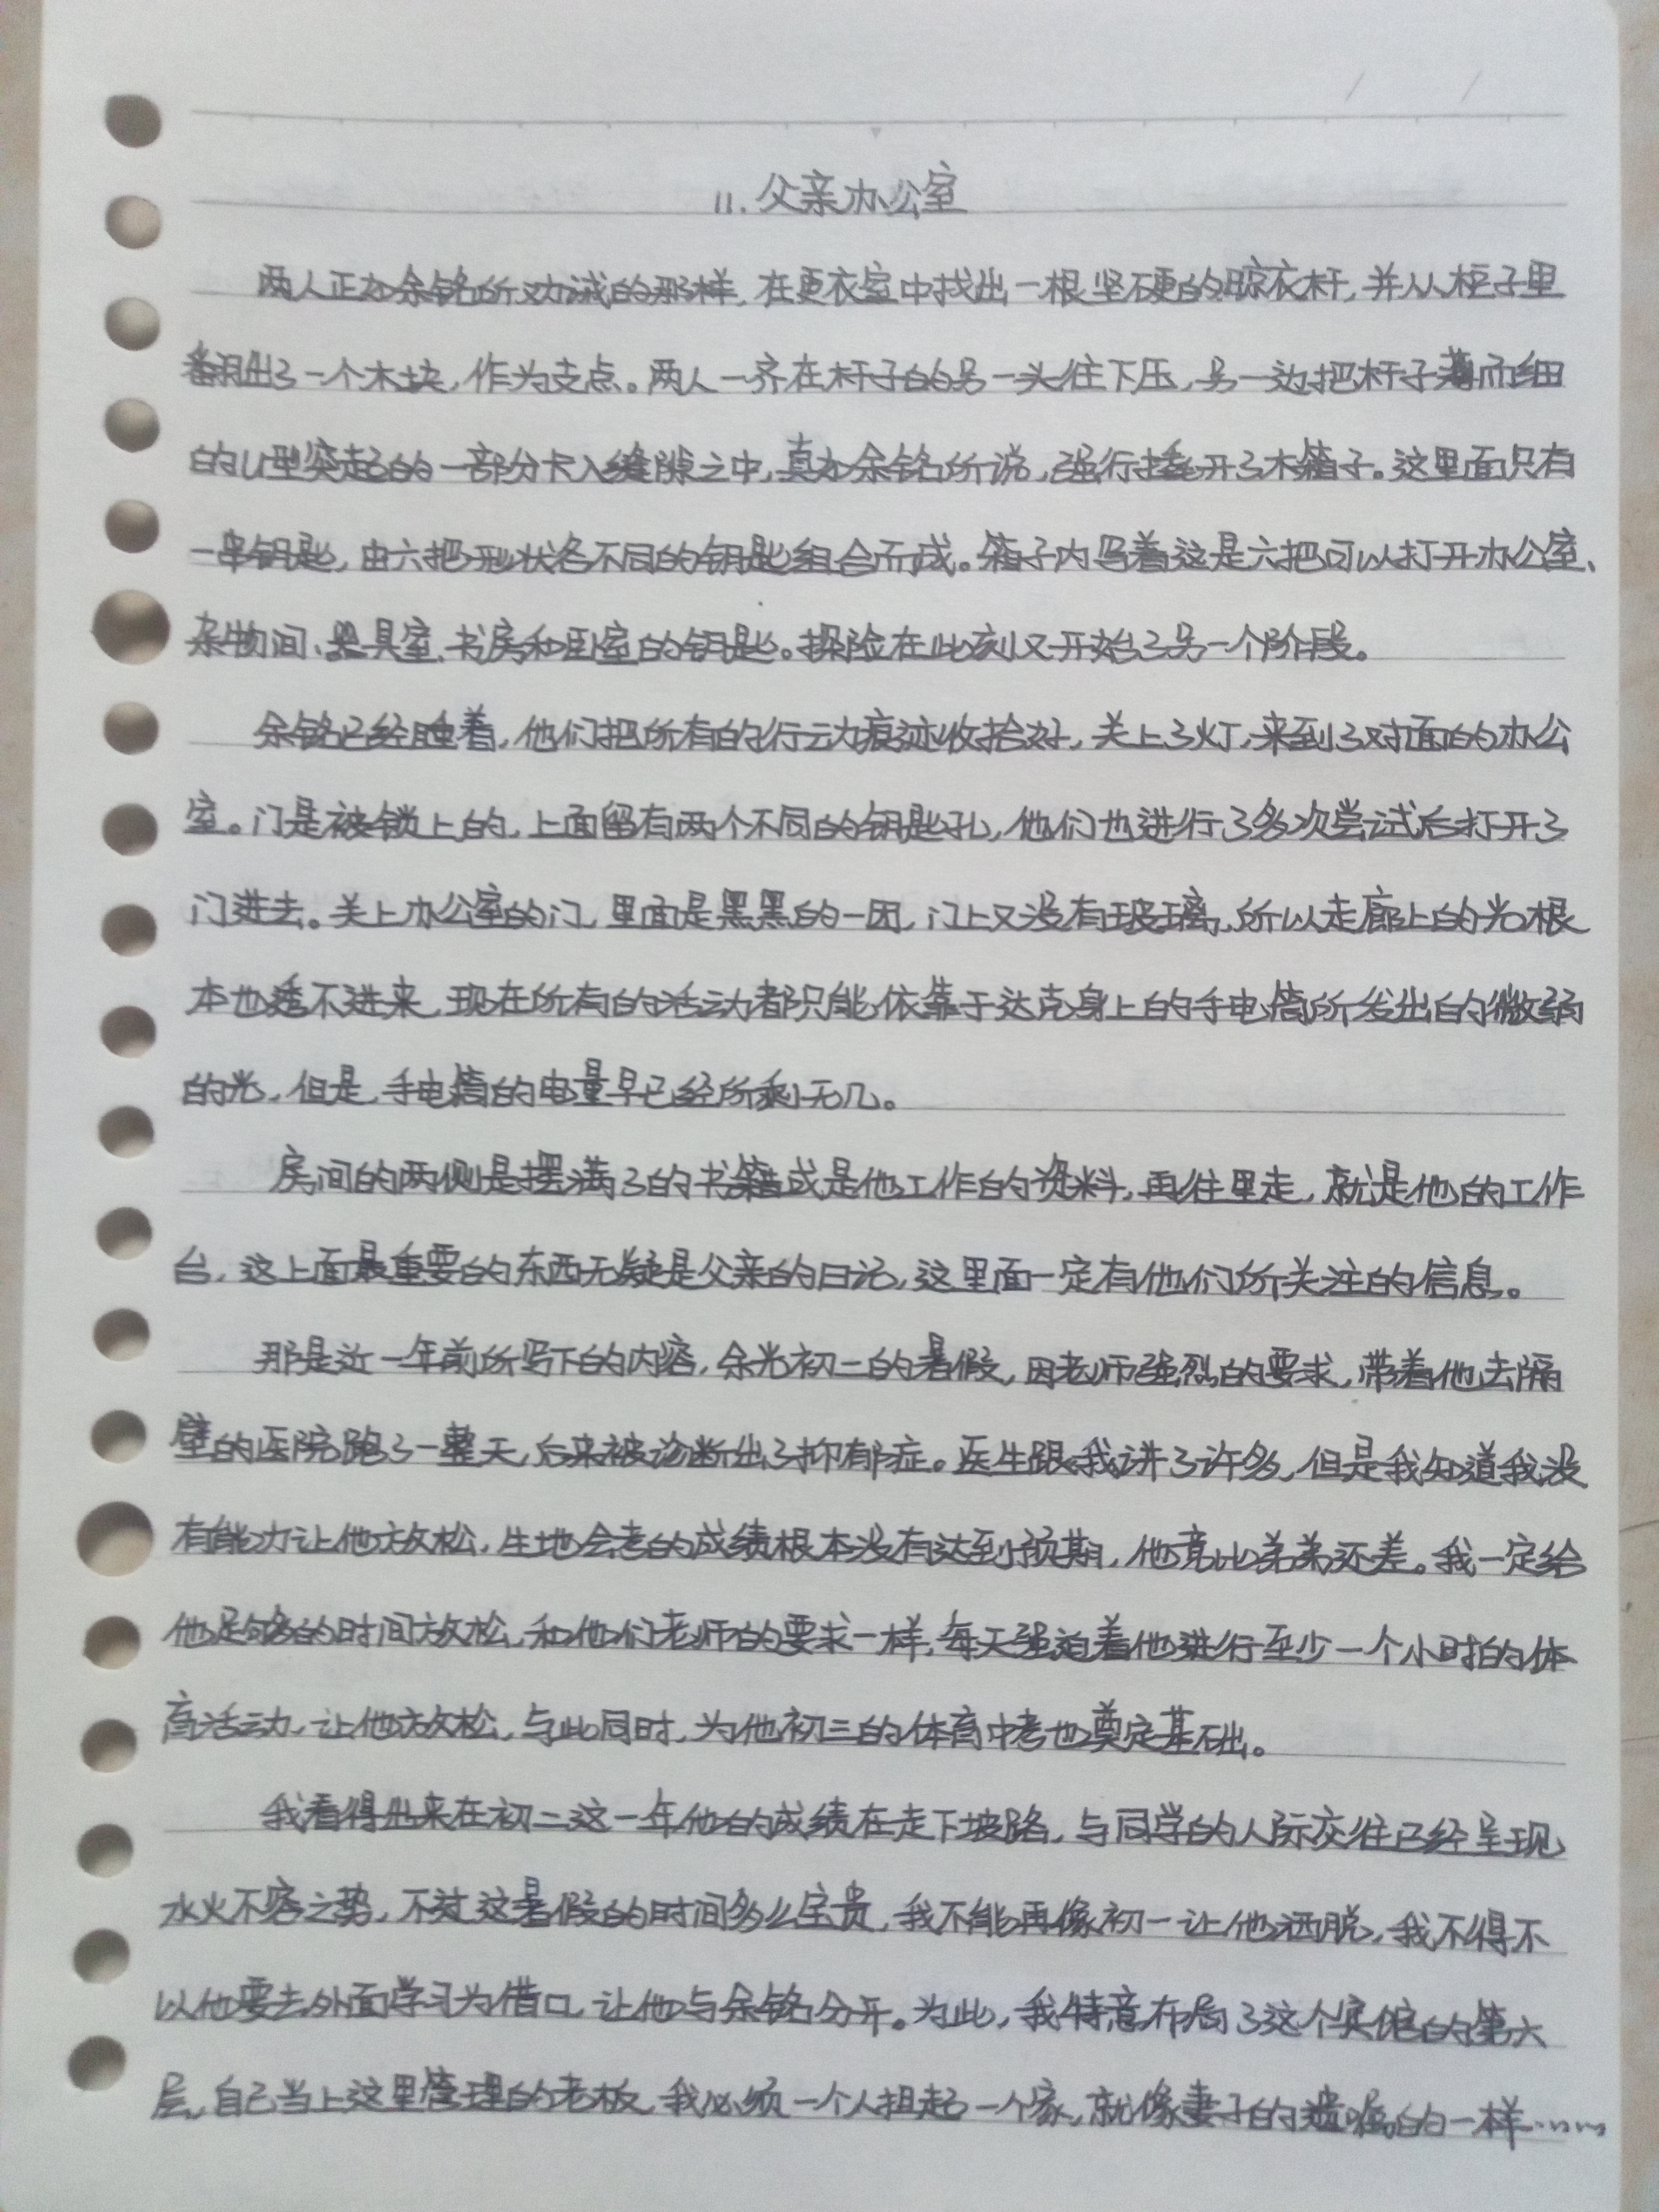 11. 父亲办公室
两人正如余铭所劝诫的那样,在更衣室中找出一根坚硬的晾衣杆,并从柜子里
翻出了一个木块,作为支点。两人一齐在杆子的另一头往下压,另一边把杆子薄而细
的U型突起的一部分卡入缝隙之中,真如余铭所说,强行撬开了木箱子。这里面只有
一串钥匙,由六把形状各不同的钥匙组合而成。箱子内写着这是六把可以打开办公室、
杂物间、器具室、书房和卧室的钥匙。探险在此刻又开始了另一个阶段。
余铭已经睡着,他们把所有的行动痕迹收拾好,关上了灯,来到了对面的办公
室。门是被锁上的,上面留有两个不同的钥匙孔,他们也进行了多次尝试后打开了
门进去。关上办公室的门,里面是黑黑的一团,门上又没有玻璃,所以走廊上的光根
本也透不进来,现在所有的活动都只能依靠于达克身上的手电筒所发出的微弱
的光,但是,手电筒的电量早已经所剩无几。
房间的两侧是摆满了的书籍或是他工作的资料,再往里走,就是他的工作
台,这上面最重要的东西无疑是父亲的日记,这里面一定有他们所关注的信息。
那是近一年前所写下的内容,余光初二的暑假,因老师强烈的要求,带着他去隔
壁的医院跑了一整天,后来被诊断出了抑郁症。医生跟我讲了许多,但是我知道我没
有能力让他放松,生地会考的成绩根本没有达到预期,他竟比弟弟还差。我一定给
他足够的时间放松,和他们老师的要求一样,每天强迫着他进行至少一个小时的体
育活动,让他放松,与此同时,为他初三的体育中考也奠定基础。
我看得出来在初二这一年他的成绩在走下坡路,与同学的人际交往已经呈现
水火不容之势,不过这暑假的时间多么宝贵,我不能再像初一让他洒脱,我不得不
以他要去外面学习为借口,让他与余铭分开。为此,我特意布局了这个宾馆的第六
层,自己当上这里管理的老板,我必须一个人担起一个家,就像妻子的遗嘱的一样……